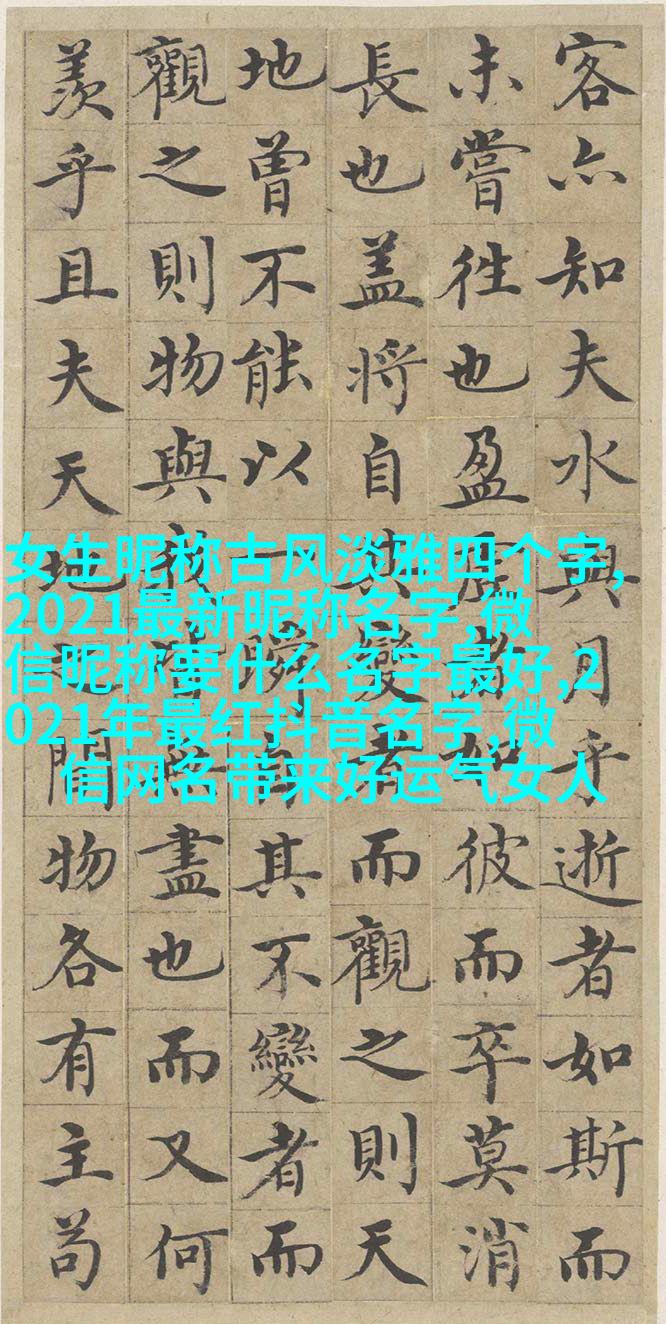 客亦知夫水與月乎逝者如斯而
未嘗往也盈虛者如彼而卒莫消
長也盖將自其變者而觀之則天
地曾不能以一瞬自其不變者而
觀之則物與我皆無盡也而又何
羨乎且夫天地之間物各有主苟
女生昵称古风淡雅四个字,
2021最新昵称名字,微
信昵称要什么名字最好,2
021年最红抖音名字,微
信网名带来好运气女人